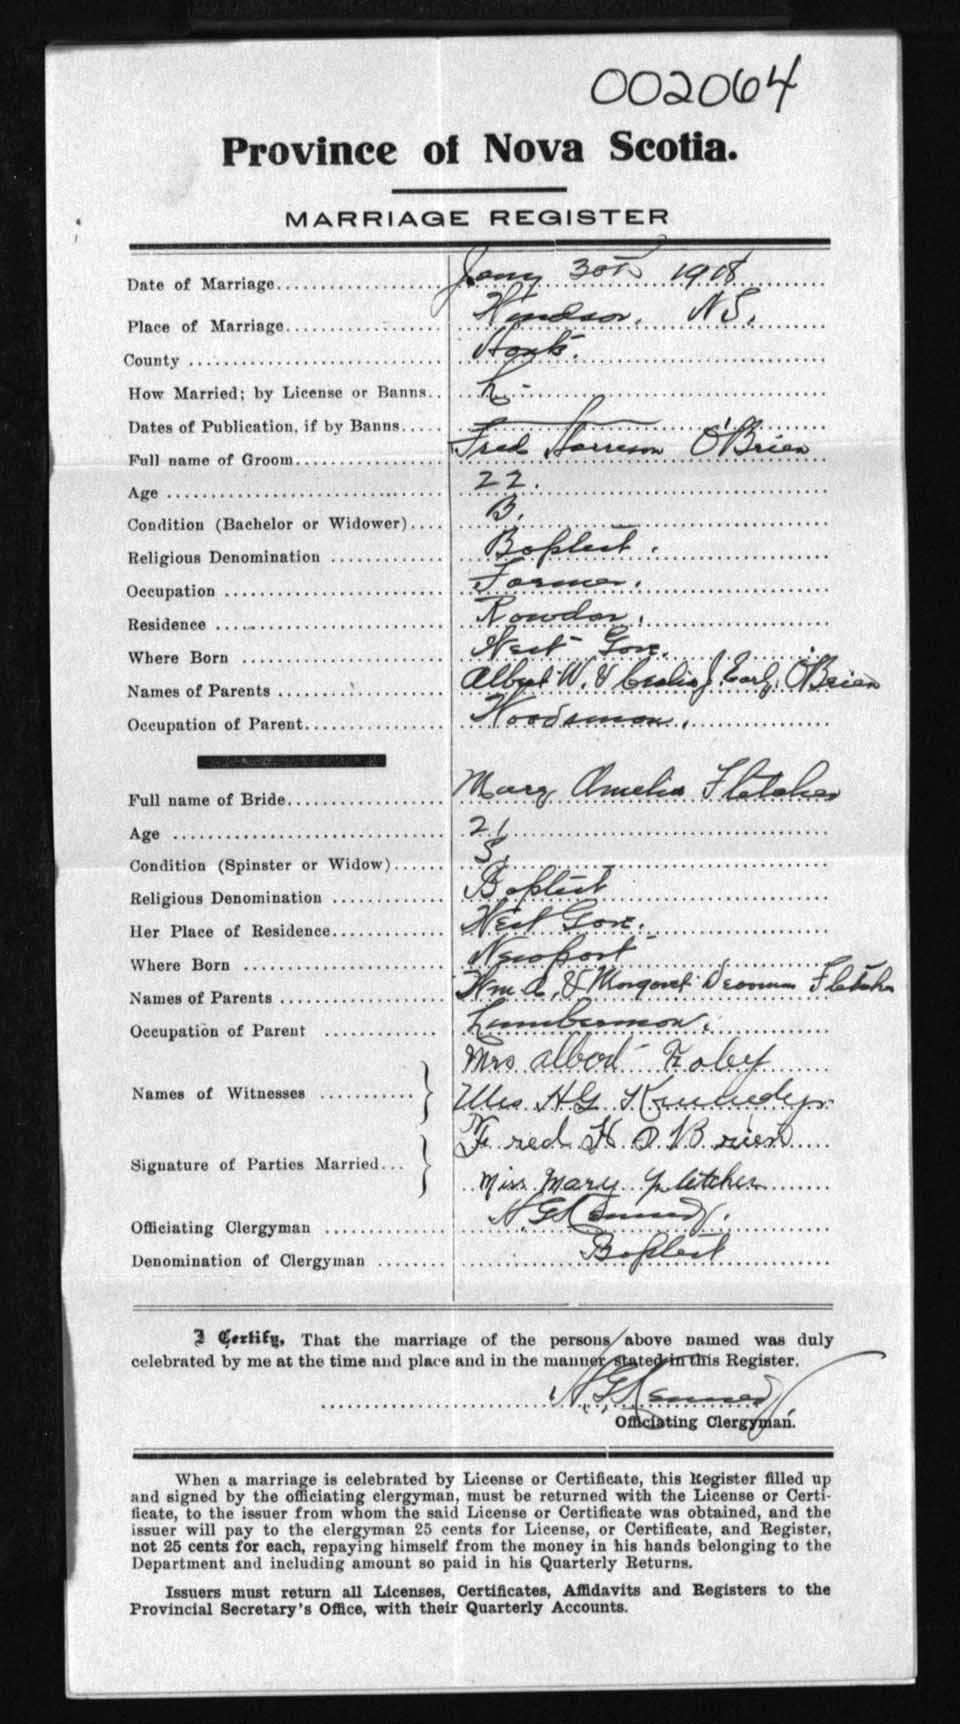 002064
Province of Nova Scotia.
MARRIAGE REGISTER
Date of Marriage Jany 30th 1918
Place of Marriage Windsor. N.S.
County Hants.
How Married; by License or Banns L -
Dates of Publication, if by Banns
Full name of Groom Fred Harrison O'Brien
Age 22.
Condition (Bachelor or Widower) B.
Religious Denomination Baptist.
Occupation Farmer.
Residence Rawdon.
Where Born West Gore.
Names of Parents Albert W. & J. O'Brien
Occupation of Parent Woodsman.
Full name of Bride Mary Amelia Fletcher
Age 21
Condition (Spinster or Widow) S.
Religious Denomination Baptist
Her Place of Residence West Gore.
Where Born Newport
Names of Parents Wm A. & Margaret Fletcher
Occupation of Parent Lumberman.
Names of Witnesses Mrs Albert
Mrs H G Kennedy
Signature of Parties Married Fred H O'Brien
Miss Mary Fletcher
Officiating Clergyman H G Kennedy.
Denomination of Clergyman Baptist
I Certify, That the marriage of the persons above named was duly
celebrated by me at the time and place and in the manner stated in this Register.
H. G. Kennedy
Officiating Clergyman.
When a marriage is celebrated by License or Certificate, this Register filled up
and signed by the officiating clergyman, must be returned with the License or Certi-
ficate, to the issuer from whom the said License or Certificate was obtained, and the
issuer will pay to the clergyman 25 cents for License, or Certificate, and Register,
not 25 cents for each, repaying himself from the money in his hands belonging to the
Department and including amount so paid in his Quarterly Returns.
Issuers must return all Licenses, Certificates, Affidavits and Registers to the
Provincial Secretary's Office, with their Quarterly Accounts.